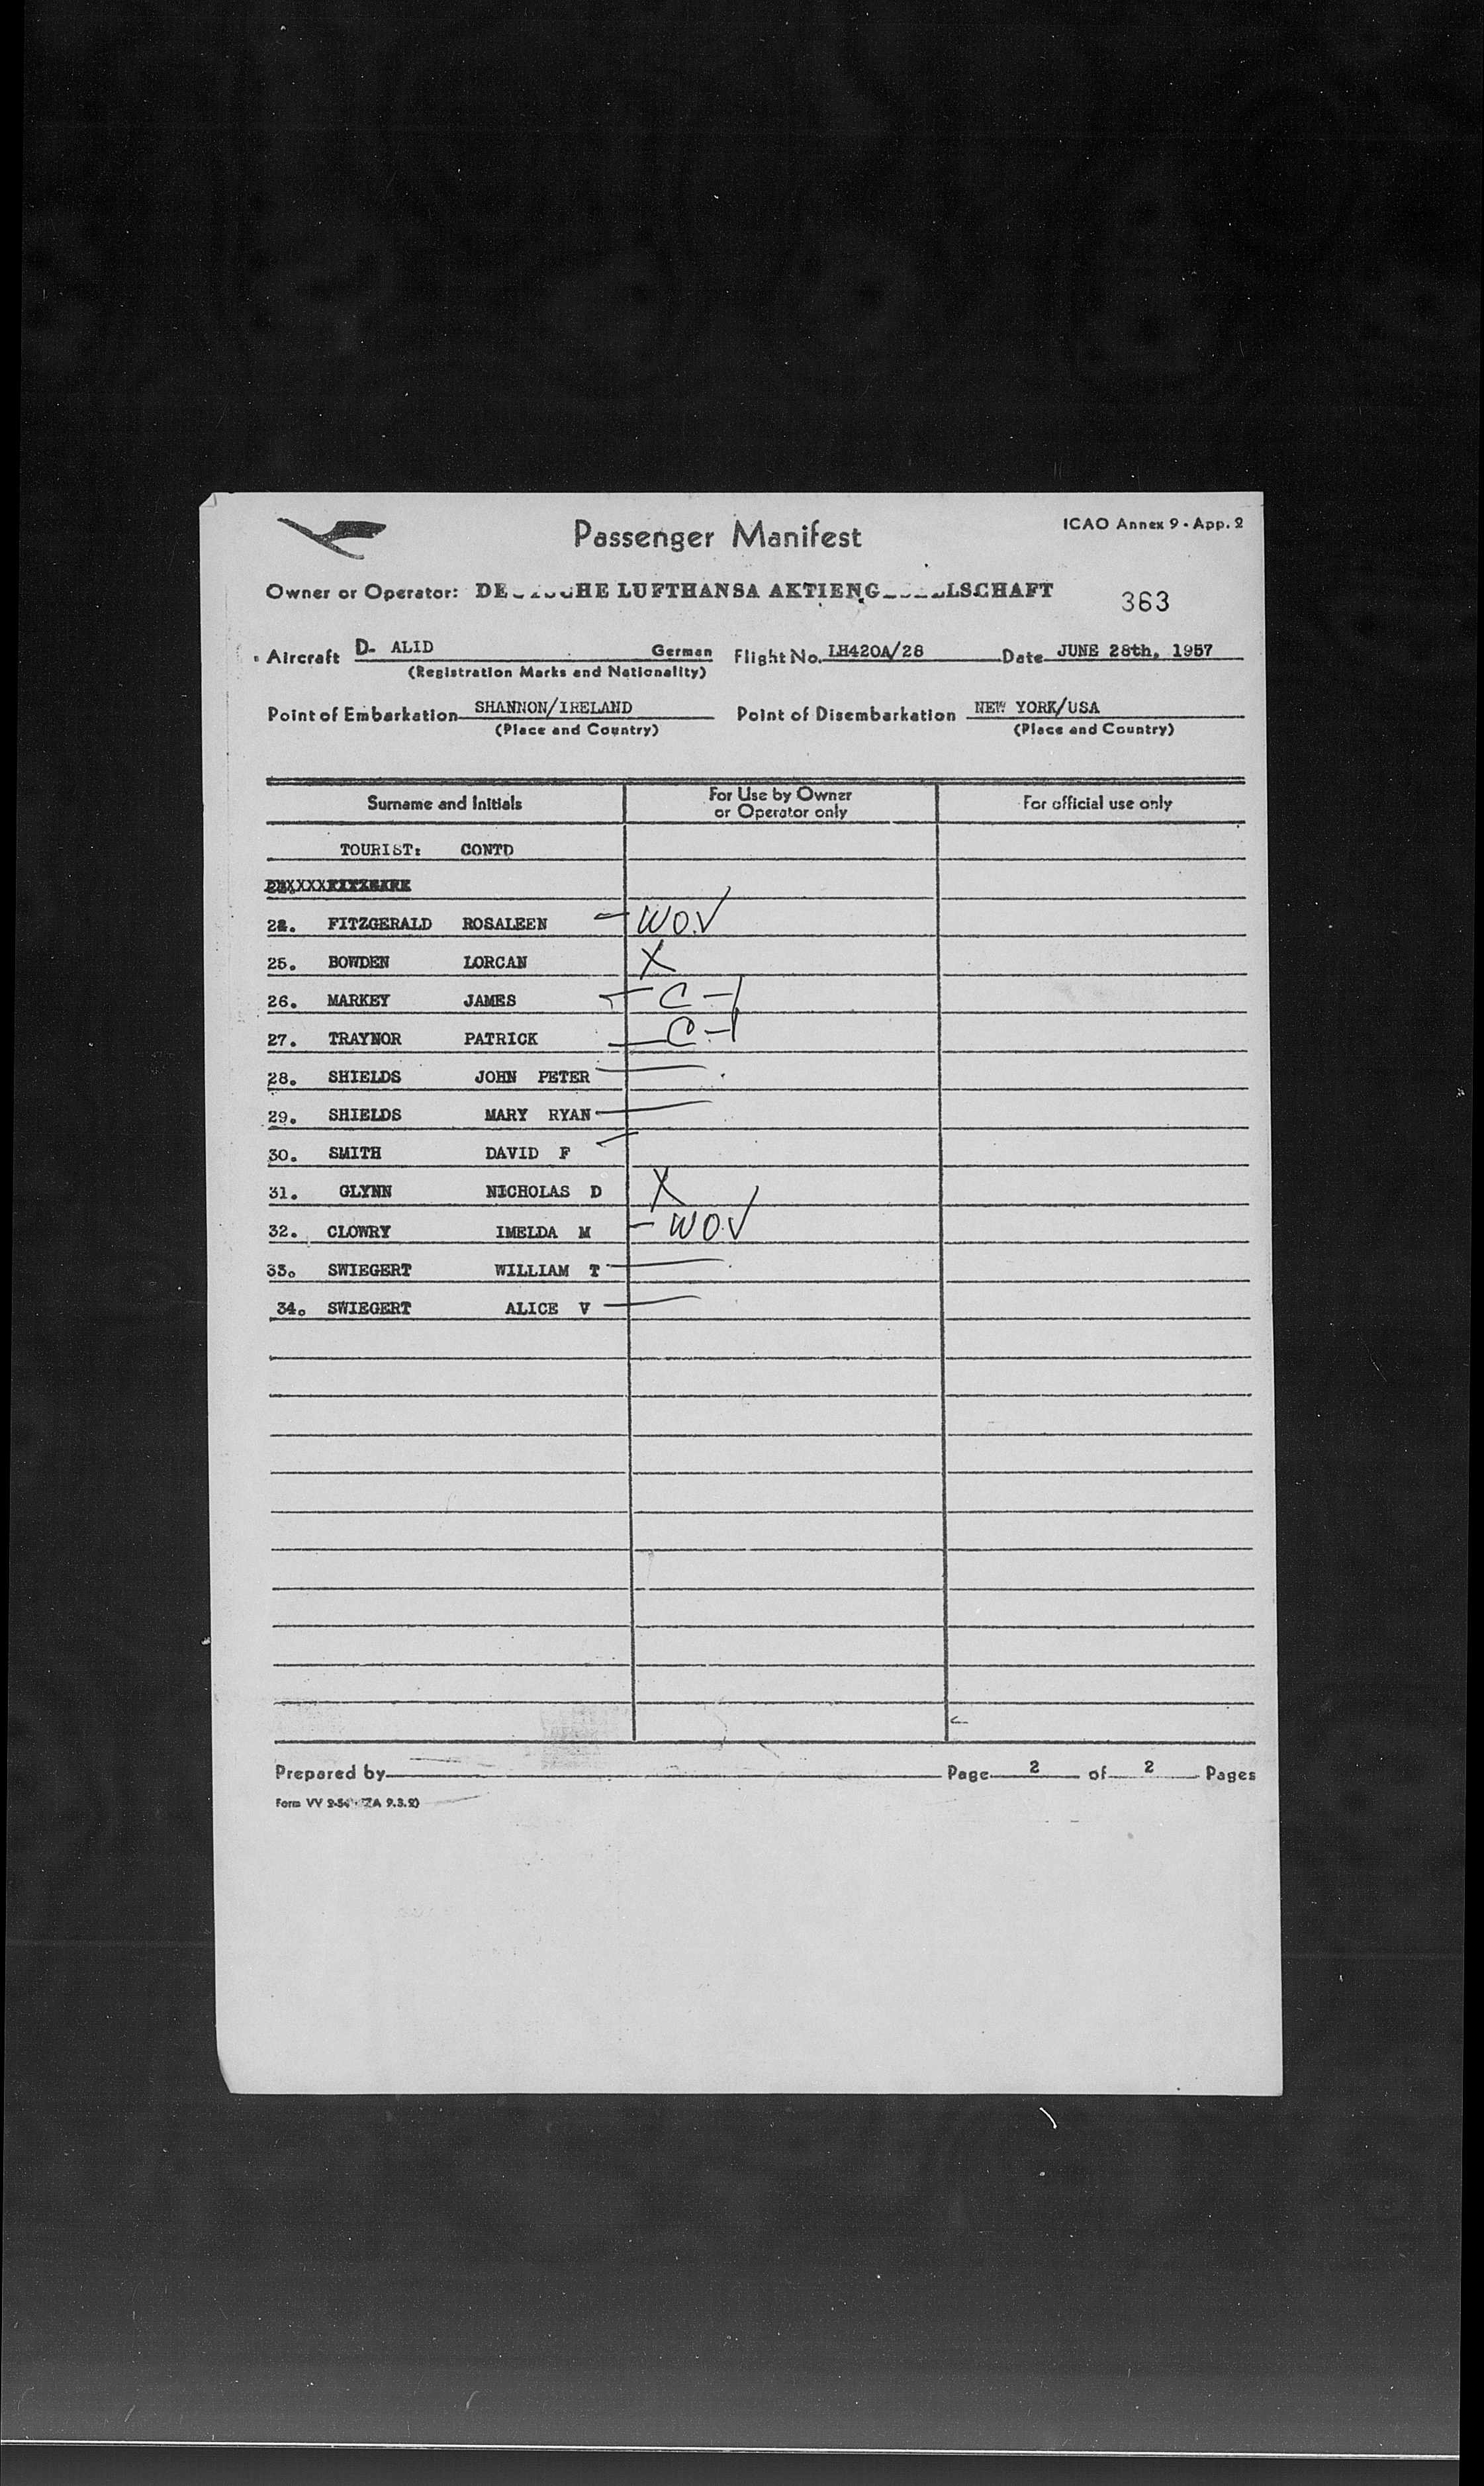 Passenger Manifest
ICAO Annex 9 - App. 2
Owner or Operator: LUFTHANSA
363
Aircraft D- ALID German Flight No. LH420A/28 Date JUNE 28th, 1957
(Registration Marks and Nationality)
Point of Embarkation SHANNON/IRELAND Point of Disembarkation NEW YORK/USA
(Place and Country) (Place and Country)
Surname and Initials For Use by Owner or Operator only For official use only
TOURIST: CONTD
FITZGERALD ROSALEEN - WO.V
25. BOWDEN LORCAN X
26. MARKEY JAMES C-1
27. TRAYNOR PATRICK C-1
28. SHIELDS JOHN PETER
29. SHIELDS MARY RYAN
30. SMITH DAVID F
31. GLYNN NICHOLAS D X
32. CLOWRY IMELDA M - WO.V
33. SWIEGERT WILLIAM T
34. SWIEGERT ALICE V
Prepared by Page 2 of 2 Pages
Form VV